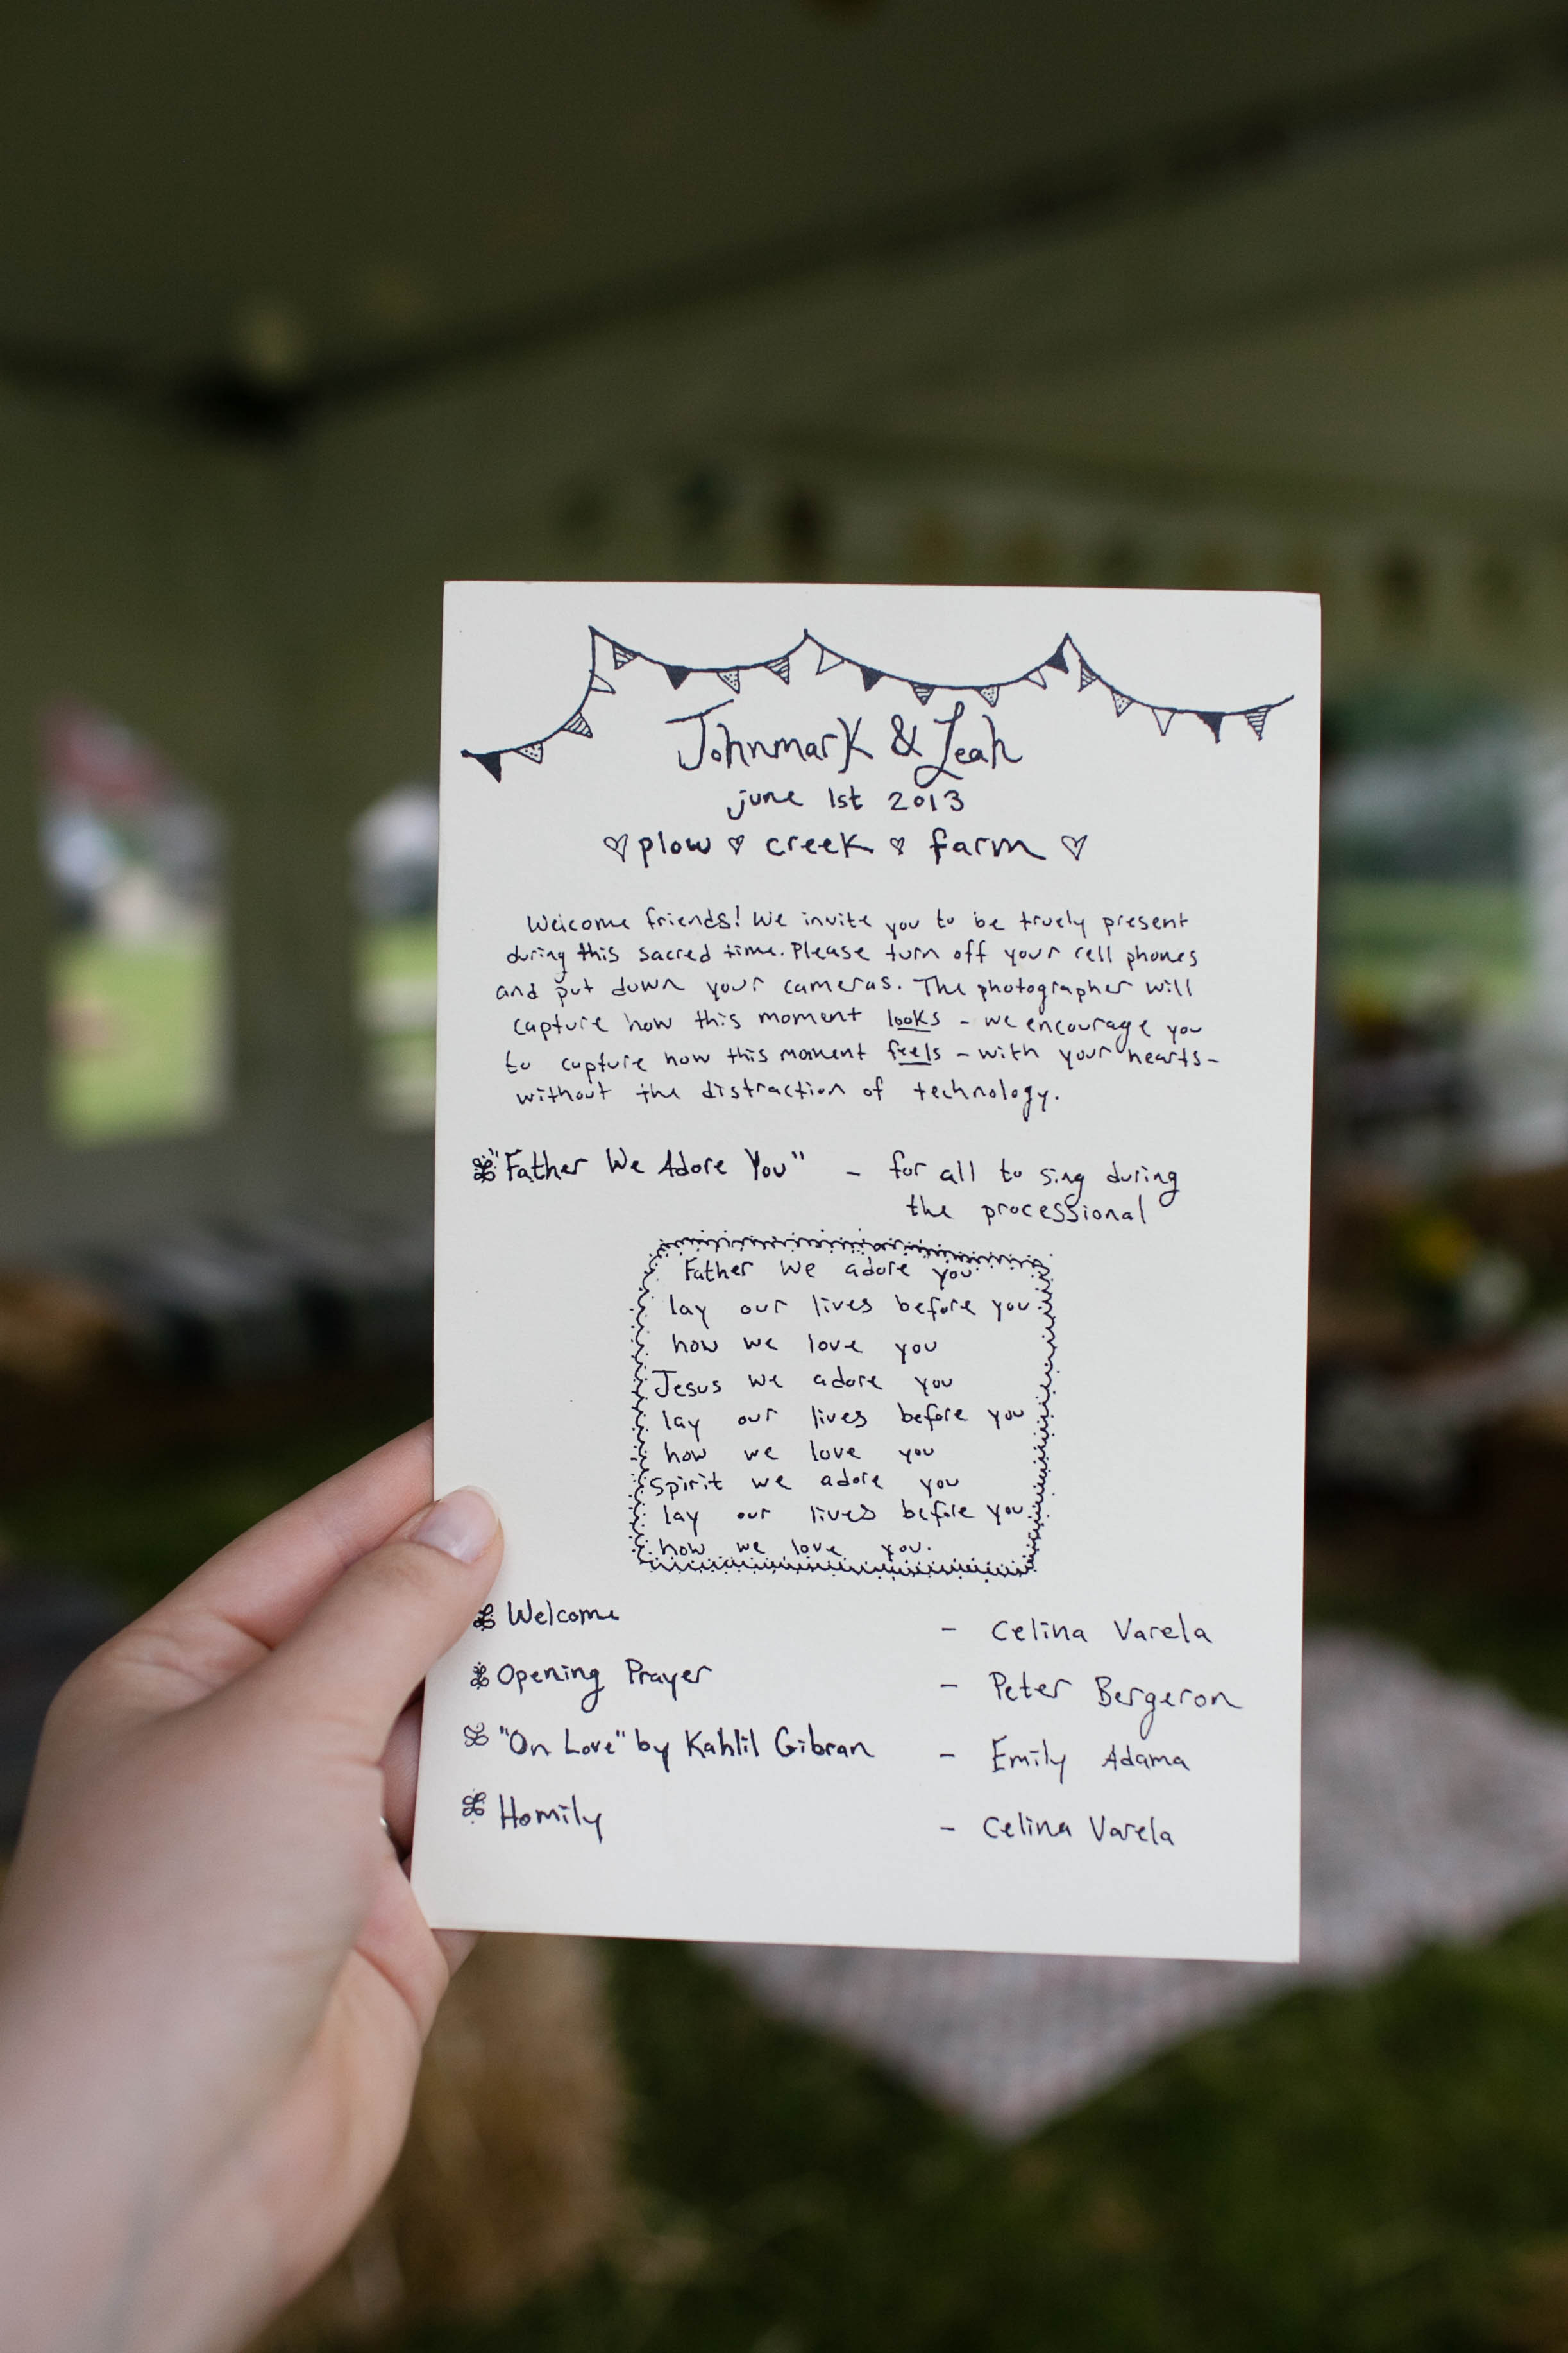 Johnmark & Leah
june 1st 2013
plow creek farm
Welcome friends! We invite you to be truely present
during this sacred time. Please turn off your cell phones
and put down your cameras. The photographer will
capture how this moment looks - we encourage you
to capture how this moment feels - with your hearts -
without the distraction of technology.
"Father We Adore You" - for all to sing during
the processional
Father we adore you
lay our lives before you
how we love you
Jesus we adore you
lay our lives before you
how we love you
Spirit we adore you
lay our lives before you
how we love you.
Welcome - Celina Varela
Opening Prayer - Peter Bergeron
"On Love" by Kahlil Gibran - Emily Adama
Homily - Celina Varela